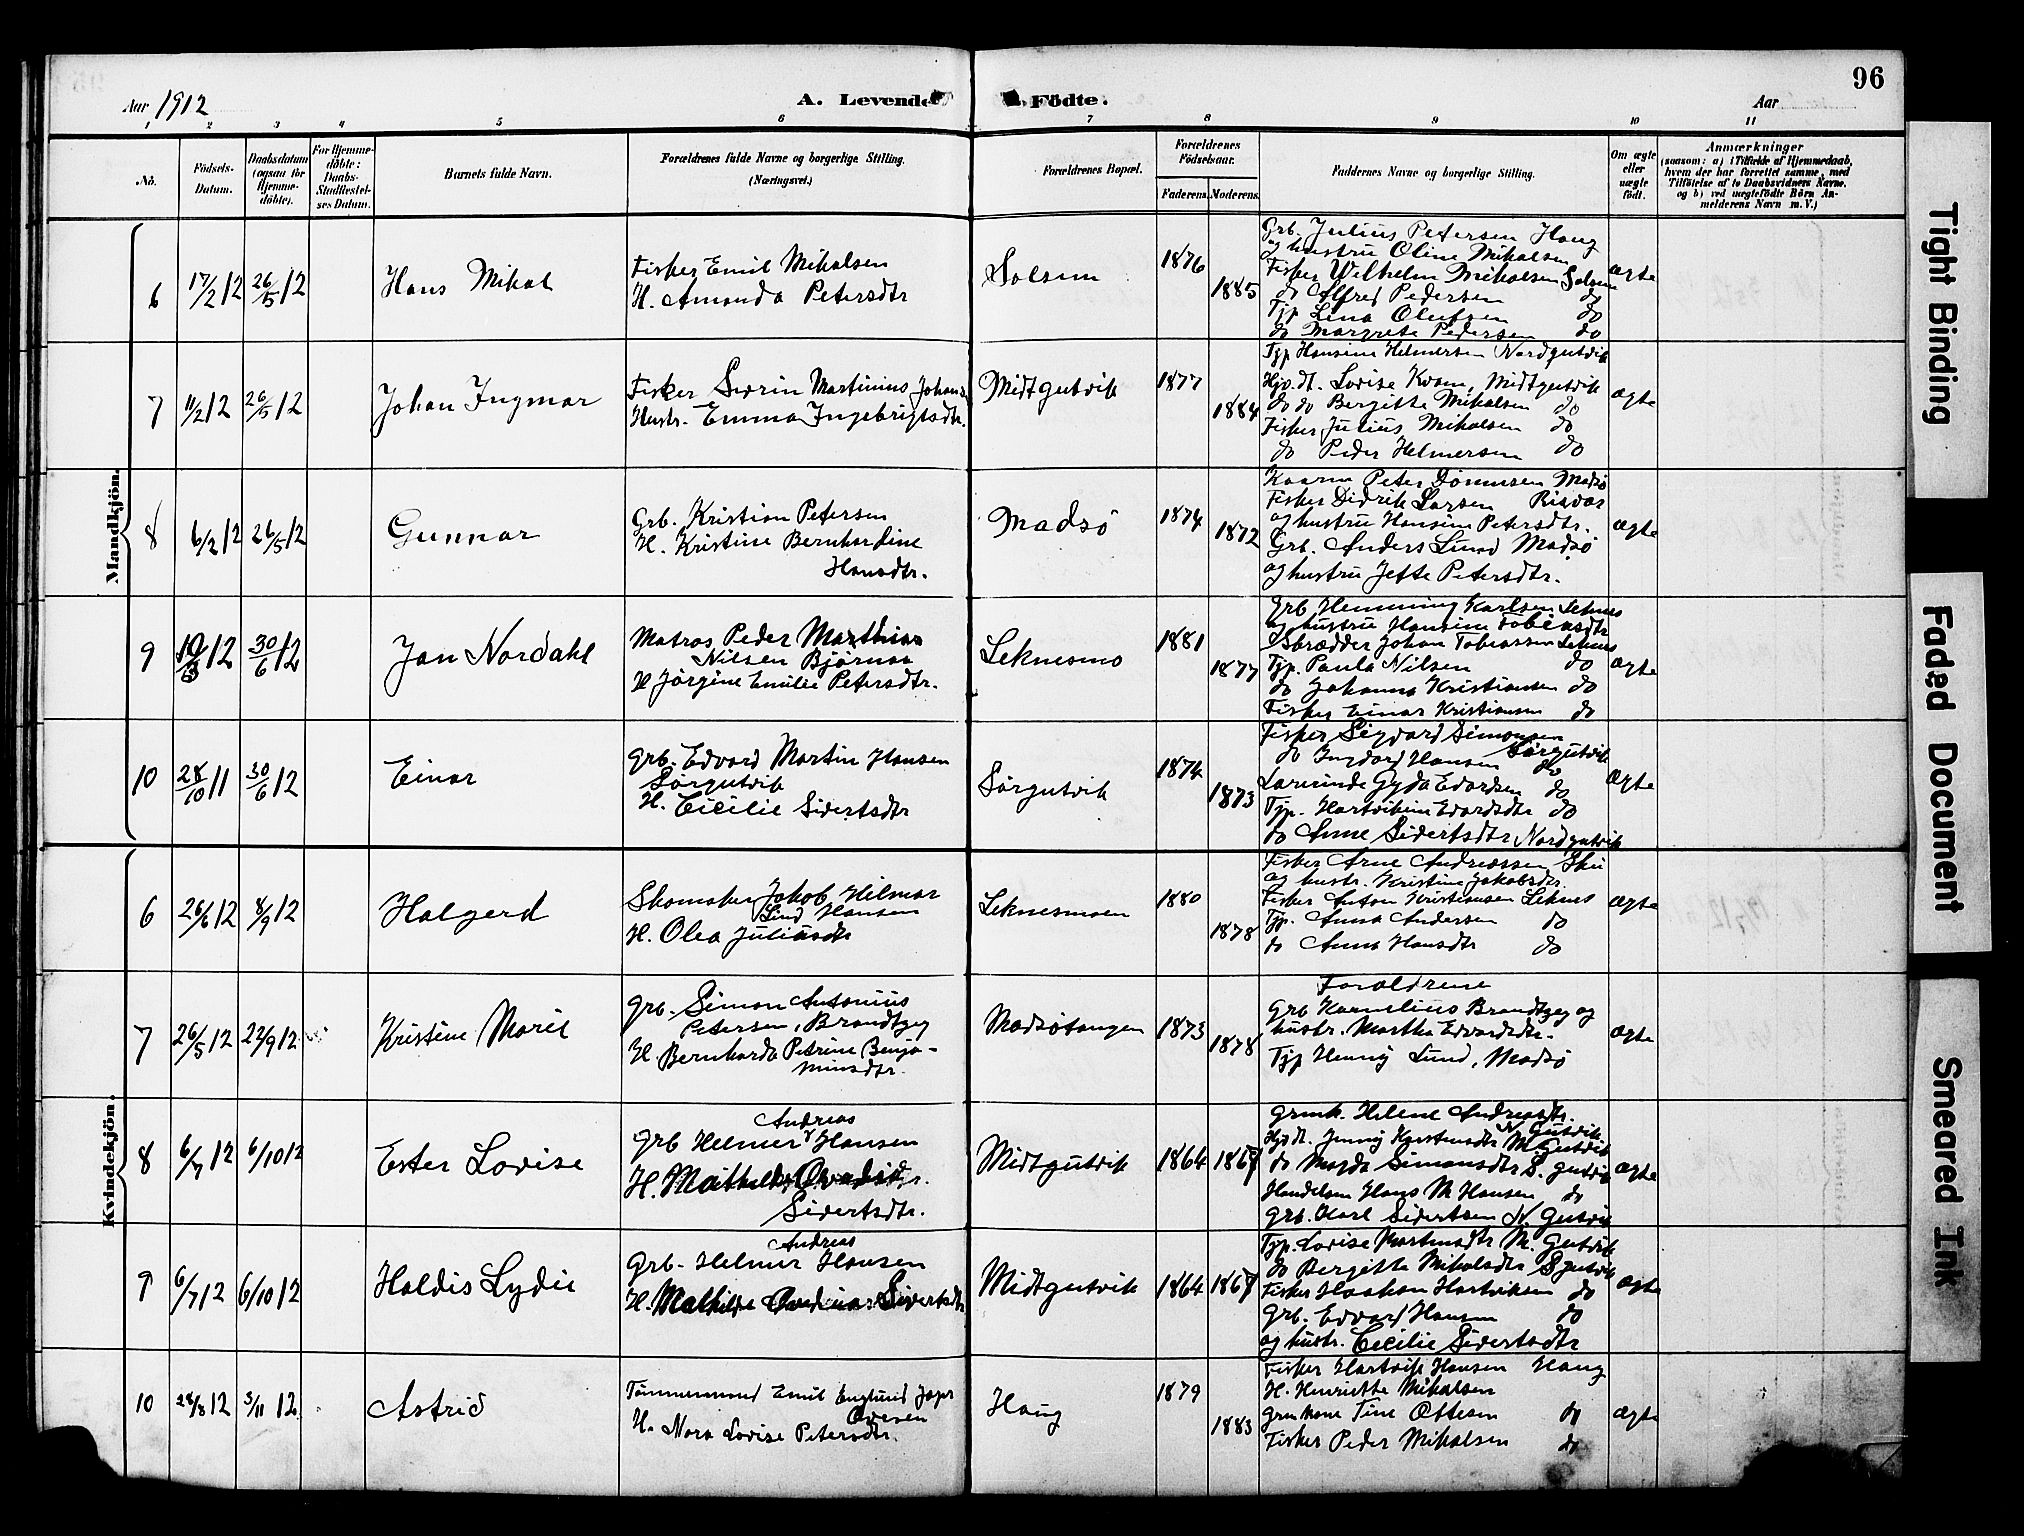 96
Aar 1912
A. Levende Födte.
Aar
1 2 3 4 5 6 7 8 9 10 11
No.
Födsels-
Datum.
Daabsdatum
(ogsaa for
Hjemme-
døbte).
For Hjemme-
döbte:
Daabs-
Stadfæstel-
ses Datum.
Barnets fulde Navn.
Forældrenes fulde Navne og borgerlige Stilling.
(Næringsvei.)
Forældrenes Bopæl.
Forældrenes
Födselsaar.
Faderens. Moderens.
Faddernes Navne og borgerlige Stilling.
Om ægte
eller
uægte
født.
Anmærkninger
(saasom: a) i Tilfælde af Hjemmedaab,
hvem der har forrettet samme, med
Tilföielse af to Daabsvidners Navne,
og b) ved uægtefödte Börn An-
melderens Navn m. V.)
Mandkjön.
6 17/2 12 26/5 12 Hans Mikal
Fisker Emil Mikalsen
H. Amanda Petersdtr
Solsem 1876 1885
Grb. Julius Petersen Haug
og hustru Oline Mikalsen
Fisker Wilhelm Mikalsen Solsem
do Alfred Pedersen do
Tjp Lina Olufsen do
do Margrete Pedersen do
ægte
7 11/2 12 26/5 12 Johan Ingmar
Fisker Sverin Martinius Johans
Hustr. Emma Ingebrigtsdtr.
Midtgutvik 1877 1884
Tjp Hansine Helmersen Nordgutvik
Hjv.dt. Lovise Kvam, Midtgutvik
do do Bergitte Mikalsen do
Fisker Julius Mikalsen do
do Peder Helmersen do
ægte
8 6/2 12 26/5 12 Gunnar
Grb. Kristian Petersen
H. Kristine Bernhardine
Hansdtr.
Madsö 1874 1872
Kaarm Peter Dönnesen Madsö
Fisker Didrik Larsen Risvær
og hustru Hansine Petersdtr.
Grb. Anders Lund Madsö
og hustru Jette Petersdtr.
ægte
9 12 30/6 12 Jan Nordahl
Matros Peder Marthias
Nilsen Bjørnar
H Jørgine Emilie Petersdtr.
Leknesmo 1881 1877
Grb Hemming Karlsen Leknes
og hustru Hansine Tobiasdtr
Johan Tobiassen Leknes
Tjp. Paula Nilsen do
do Johanna Kristiansen do
Fisker Einar Kristiansen do
ægte
10 28/10 11 30/6 12 Einar
Grb. Edvard Martin Hansen
Sörgutvik
H. Cecilie Sivertsdtr
Sørgutvik 1874 1873
Fisker Sigvard Simonsen
Sørgutvik
do Ingvard Hansen do
Lærerinde Gyda Edvardsen do
Tjp. Hartvikine Edvardsdtr do
do Anne Sivertsdtr Nordgutvik
ægte
Kvindekjön.
6 26/6 12 8/9 12 Halgerd
Skomaker Jakob Hilmar
Lind Hansen
H. Olea Juliusdtr
Leknesmoen 1880 1878
Fisker Arne Andreassen
og hustr. Kristine Jakobsdtr.
Fisker Anton Kristiansen Leknes
Tjp. Anna Andersen do
do Anna Hansdtr do
ægte
7 26/5 12 22/9 12 Kristine Marie
Grb. Simon Antonius
Petersen, Brandtzeg
H. Bernharda Petrine Benja-
minsdtr.
Madsötangen 1873 1878
Forældrene
Grb Kornelius Brandtzeg og
hustr. Martha Edvardsdtr.
Tjp Henny Lund, Madsö
ægte
8 6/7 12 6/10 12 Ester Lovise
Andreas
Grb Helmer Hansen
H. Mathilde
Sivertsdtr.
Midtgutvik 1864 1867
Grmk. Helene Andreasdtr.
N. Gutvik
Hjv.dt. Jenny Martinsdtr M. Gutvik
do Magda Simonsdtr S. gutvik
Handelsm Hans M Hansen do
Grb. Karl Sivertsen N. Gutvik
ægte
9 6/7 12 6/10 12 Haldis Lydie
Andreas
Grb. Helmer Hansen
H. Mathilde Sivertsdtr
Midtgutvik 1864 1867
Tjp. Lovise Martinsdtr M. Gutvik
do Bergitte Mikalsdtr S gutvik
Fisker Haakon Hartviksen do
Grb. Edvard Hansen do
og hustr. Cecilie Sivertsdtr
ægte
10 28/8 12 3/11 12 Astrid
Tømmermand Emil Englund
Ovesen
H. Nora Lovise Petersdtr.
Haug 1879 1883
Fisker Hartvik Hansen Haug
H. Henriette Mikalsen
Grmkone Tine Ottesen do
Fisker Peder Mikalsen do
ægte
Tight Binding
Faded Document
Smeared Ink